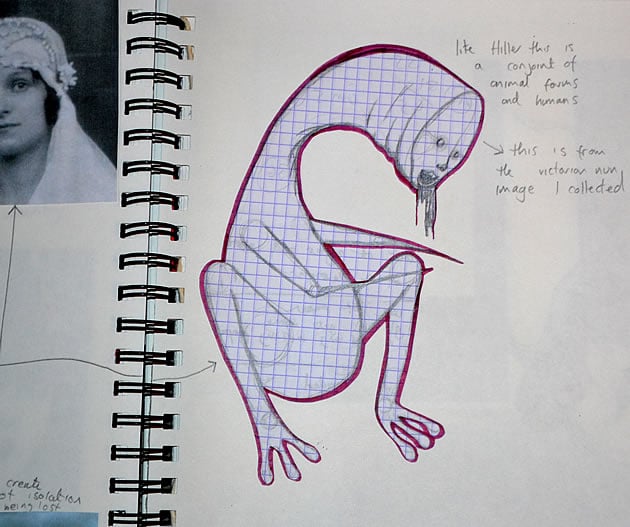 like Hiller this is
a conjoint of
animal forms
and humans
this is from
the victorian nun
image I collected
create
of isolation
being lost